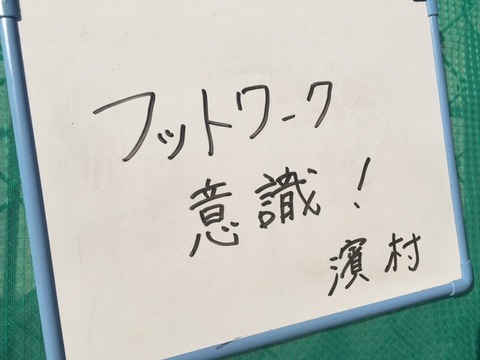 フットワーク
意識!
濱村